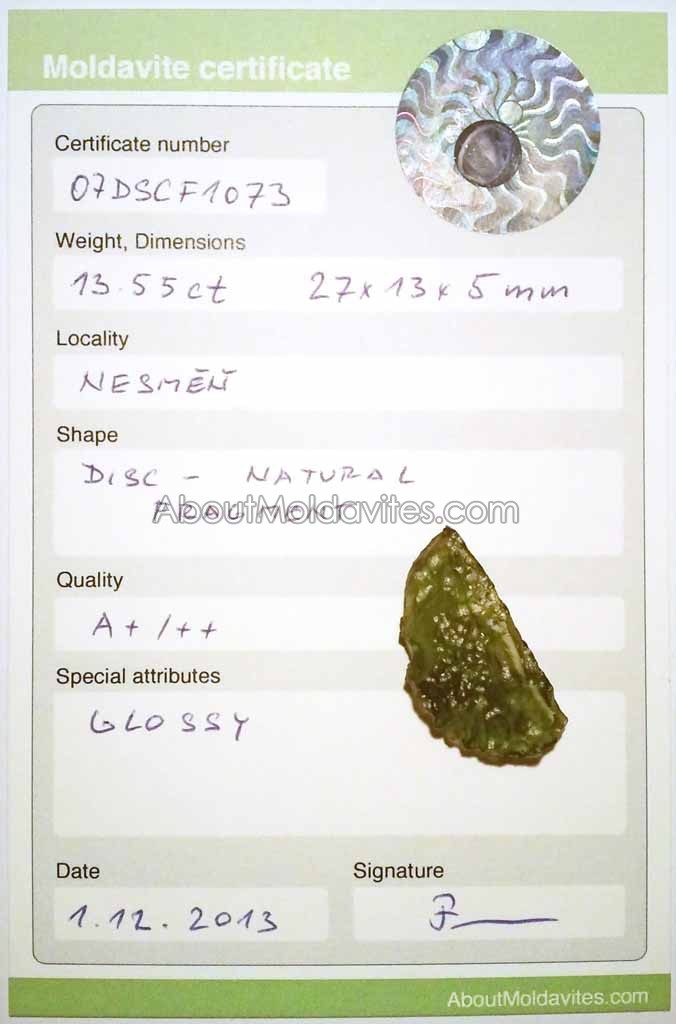 Moldavite certificate
Certificate number
07DSCF1073
Weight, Dimensions
13.55ct 27x13x5mm
Locality
NESMĚŇ
Shape
DISC - NATURAL
FRAGMENT
AboutMoldavites.com
Quality
A+/++
Special attributes
GLOSSY
Date Signature
1.12.2013
AboutMoldavites.com